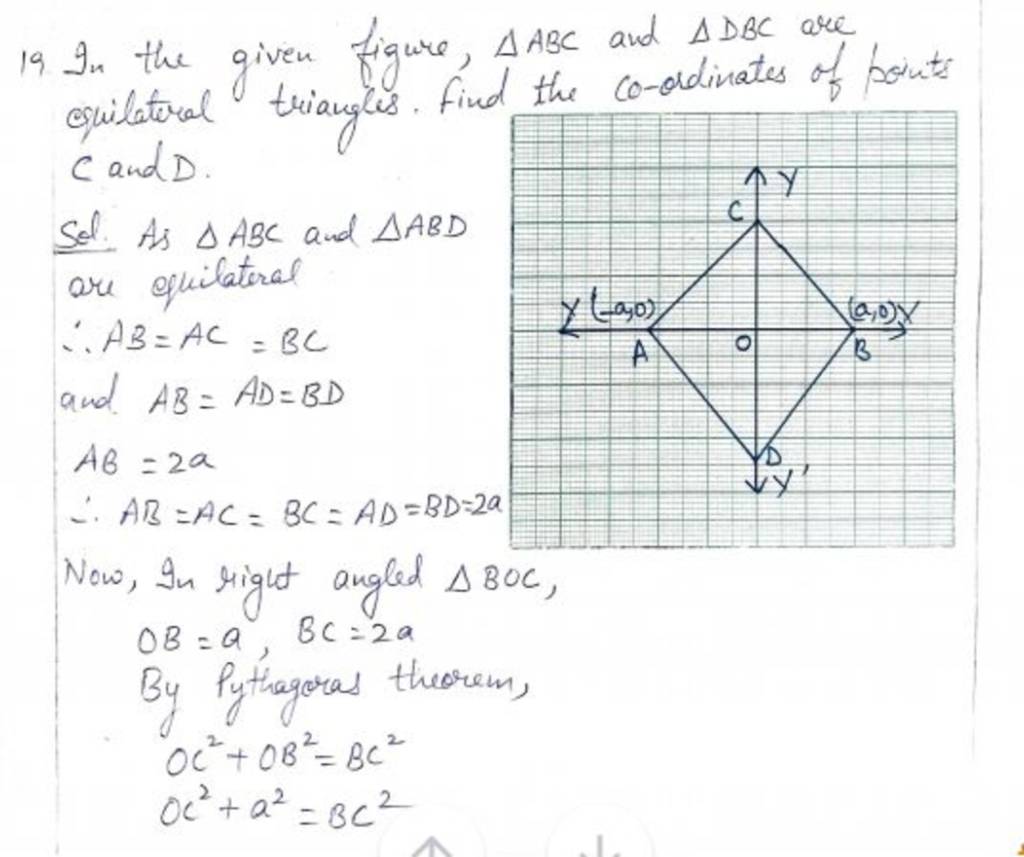 19. In the given figure, △ABC and △DBC are
equilateral triangles. Find the co-ordinates of points
C and D.
Sol. As △ABC and △ABD
are equilateral
∴ AB = AC = BC
and AB = AD = BD
AB = 2a
∴ AB = AC = BC = AD = BD = 2a
Now, In right angled △BOC,
OB = a, BC = 2a
By Pythagoras theorem,
OC² + OB² = BC²
OC² + a² = BC²
Y
C
Y (-a,0)
(a,0) X
A
O
B
D
Y'